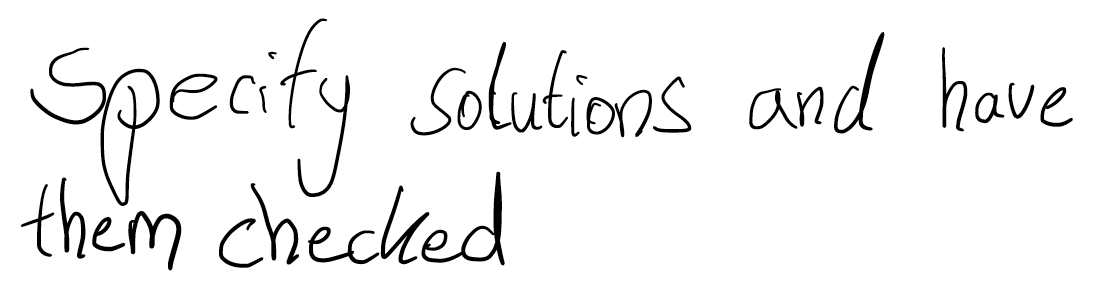 Specify solutions and have
them checked